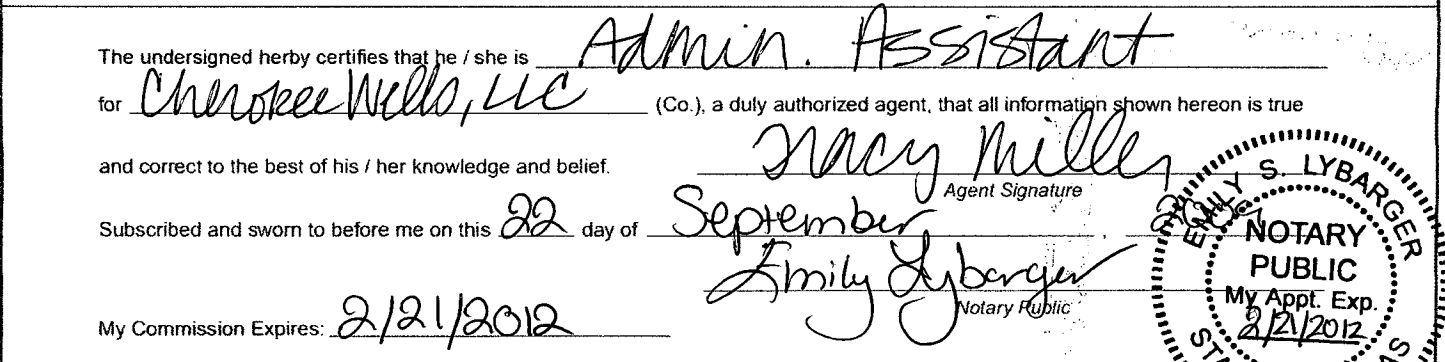 The undersigned herby certifies that he / she is Admin. Assistant
for Cherokee Wells, LLC (Co.), a duly authorized agent, that all information shown hereon is true
and correct to the best of his / her knowledge and belief. Tracy Miller
Agent Signature
Subscribed and sworn to before me on this 22 day of September,
Emily Lybarger
Notary Public
My Commission Expires: 2/21/2012
EMILY S. LYBARGER
NOTARY
PUBLIC
My Appt. Exp.
2/21/2012